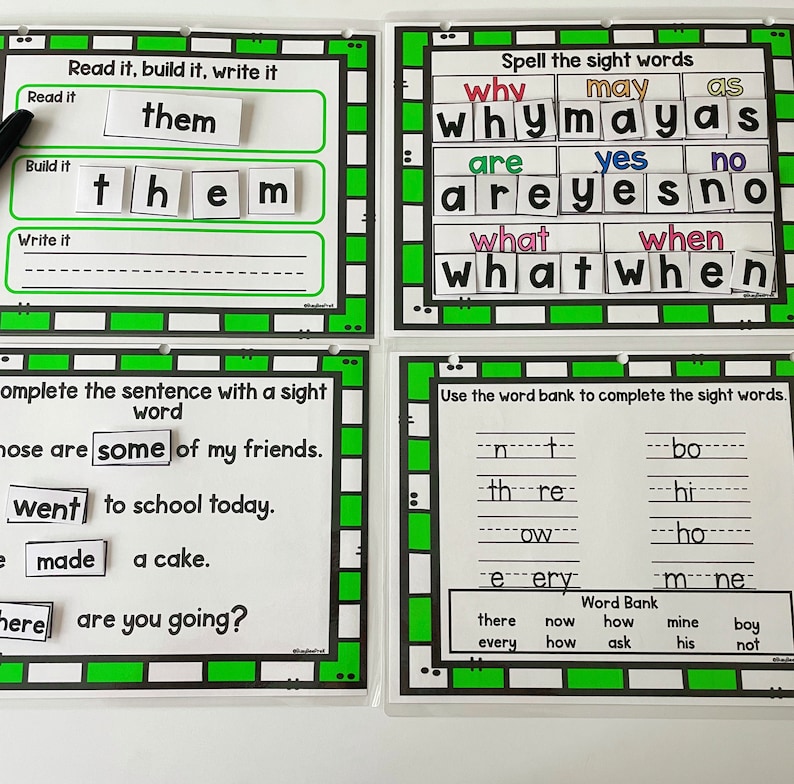 Read it, build it, write it
Read it
them
Build it
t h e m
Write it
©BusyBeePreK
Spell the sight words
why may as
w h y m a y a s
are yes no
a r e y e s n o
what when
w h a t w h e n
©BusyBeePreK
omplete the sentence with a sight
word
hose are some of my friends.
went to school today.
e made a cake.
here are you going?
©BusyBeePreK
Use the word bank to complete the sight words.
n t bo
th re hi
ow ho
e ery m ne
Word Bank
there now how mine boy
every how ask his not
©BusyBeePreK